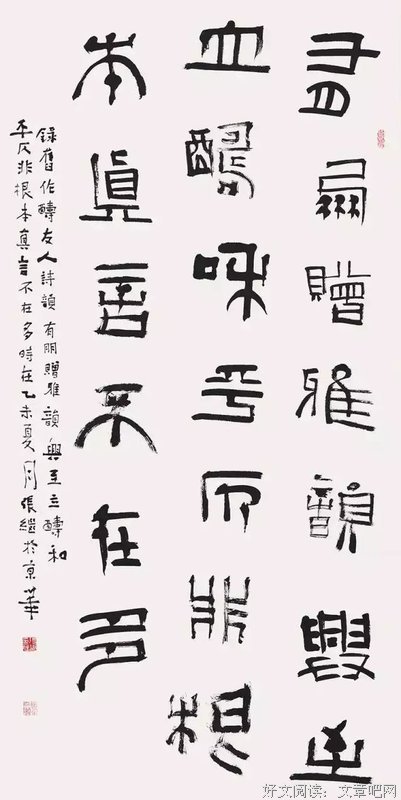 有朋贈雅韻興至
立醻和平仄非根
本真言不在多
錄舊作醻友人詩韻有朋贈雅韻興至立醻和
平仄非根本真言不在多時在乙未夏月張繼於京華
好文阅读：文章吧网